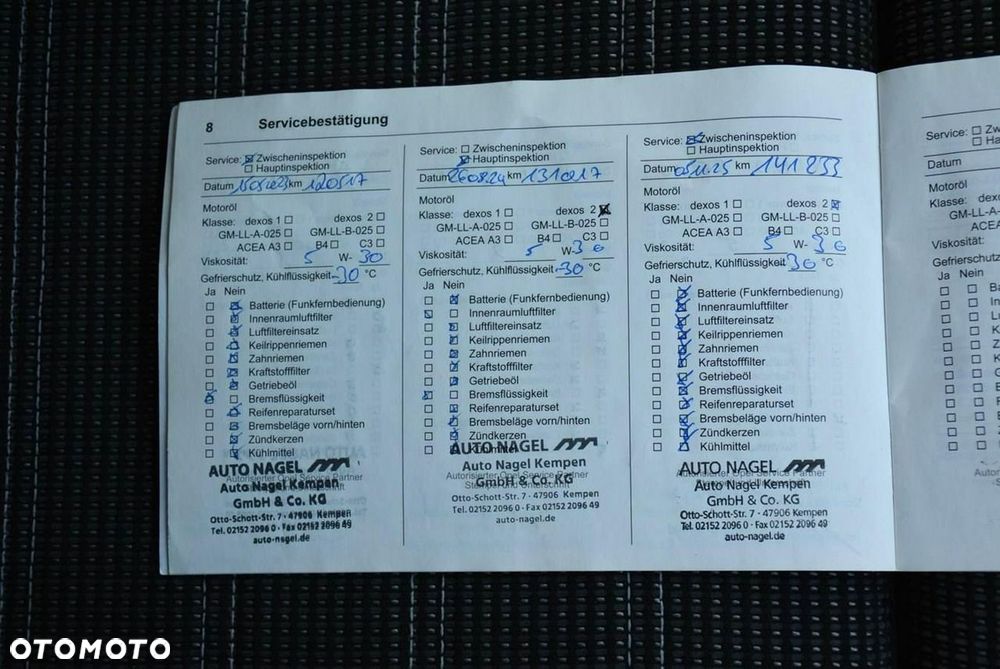 8 Servicebestätigung
Service: ☒ Zwischeninspektion
☐ Hauptinspektion
Datum 15.05.23 km 120517
Motoröl
Klasse: dexos 1 ☐ dexos 2 ☐
GM-LL-A-025 ☐ GM-LL-B-025 ☐
ACEA A3 ☐ B4 ☐ C3 ☐
Viskosität: 5 W- 30
Gefrierschutz, Kühlflüssigkeit -30 °C
Ja Nein
☐ ☒ Batterie (Funkfernbedienung)
☐ ☒ Innenraumluftfilter
☐ ☒ Luftfiltereinsatz
☐ ☒ Keilrippenriemen
☐ ☒ Zahnriemen
☐ ☒ Kraftstofffilter
☐ ☒ Getriebeöl
☒ ☐ Bremsflüssigkeit
☐ ☒ Reifenreparaturset
☐ ☒ Bremsbeläge vorn/hinten
☐ ☒ Zündkerzen
☐ ☒ Kühlmittel
AUTO NAGEL
Autorisierter Opel Service Partner
Auto Nagel Kempen
GmbH & Co. KG
Otto-Schott-Str. 7 · 47906 Kempen
Tel. 02152 2096 0 · Fax 02152 2096 49
auto-nagel.de
Service: ☐ Zwischeninspektion
☒ Hauptinspektion
Datum 26.08.24 km 131017
Motoröl
Klasse: dexos 1 ☐ dexos 2 ☒
GM-LL-A-025 ☐ GM-LL-B-025 ☐
ACEA A3 ☐ B4 ☐ C3 ☐
Viskosität: 5 W- 30
Gefrierschutz, Kühlflüssigkeit -30 °C
Ja Nein
☐ ☒ Batterie (Funkfernbedienung)
☒ ☐ Innenraumluftfilter
☐ ☒ Luftfiltereinsatz
☐ ☒ Keilrippenriemen
☐ ☒ Zahnriemen
☐ ☒ Kraftstofffilter
☐ ☒ Getriebeöl
☒ ☐ Bremsflüssigkeit
☐ ☒ Reifenreparaturset
☐ ☒ Bremsbeläge vorn/hinten
☐ ☒ Zündkerzen
☐ ☒ Kühlmittel
AUTO NAGEL
Auto Nagel Kempen
Autorisierter Opel Service Partner
GmbH & Co. KG
Otto-Schott-Str. 7 · 47906 Kempen
Tel. 02152 2096 0 · Fax 02152 2096 49
auto-nagel.de
Service: ☒ Zwischeninspektion
☐ Hauptinspektion
Datum 05.11.25 km 141233
Motoröl
Klasse: dexos 1 ☐ dexos 2 ☒
GM-LL-A-025 ☐ GM-LL-B-025 ☐
ACEA A3 ☐ B4 ☐ C3 ☐
Viskosität: 5 W- 30
Gefrierschutz, Kühlflüssigkeit -30 °C
Ja Nein
☐ ☒ Batterie (Funkfernbedienung)
☐ ☒ Innenraumluftfilter
☐ ☒ Luftfiltereinsatz
☐ ☒ Keilrippenriemen
☐ ☒ Zahnriemen
☐ ☒ Kraftstofffilter
☐ ☒ Getriebeöl
☐ ☒ Bremsflüssigkeit
☐ ☒ Reifenreparaturset
☐ ☒ Bremsbeläge vorn/hinten
☐ ☒ Zündkerzen
☐ ☒ Kühlmittel
AUTO NAGEL
Autorisierter Opel Service Partner
Auto Nagel Kempen
GmbH & Co. KG
Otto-Schott-Str. 7 · 47906 Kempen
Tel. 02152 2096 0 · Fax 02152 2096 49
auto-nagel.de
Service: ☐ Zw
☐ Ha
Datum
Motoröl
Klasse: dexos
GM-LL-A-0
ACEA A
Viskosität:
Gefrierschutz
Ja Nein
☐ ☐ Ba
☐ ☐ In
☐ ☐ L
☐ ☐ K
☐ ☐ Z
☐ ☐ K
Autor
OTOMOTO